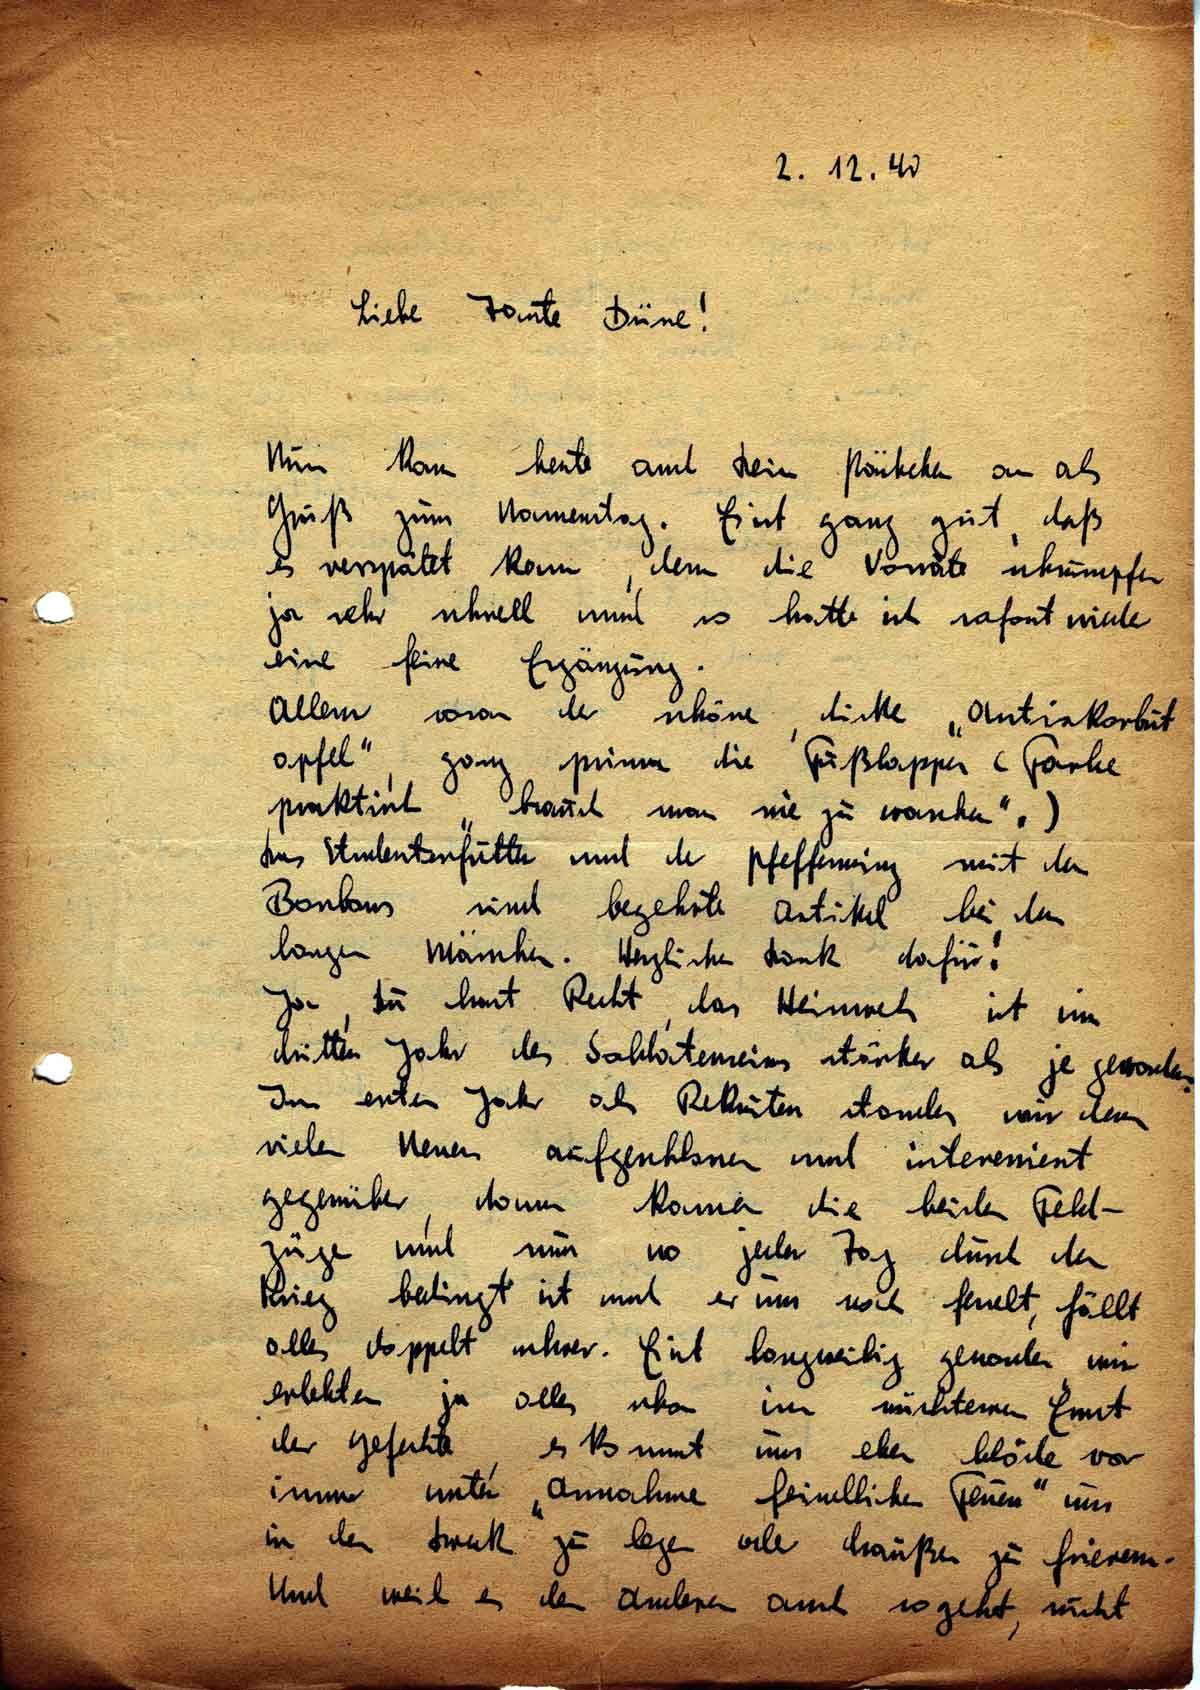 2. 12. 40
Liebe Tante Düne!
Nun kam heute auch Dein Päckchen an als
Gruß zum Namenstag. Es ist ganz gut, daß
es verspätet kam, denn die Vorräte schrumpfen
ja sehr schnell und so hatte ich sofort wieder
eine feine Ergänzung.
Allem voran der schöne, dicke „Antiskorbut
apfel", ganz prima die Fußlappen (Farbe
praktisch „brauch man nie zu waschen".)
Das Studentenfutter und der Pfefferminz mit den
Bonbons sind begehrte Artikel bei den
langen Märschen. Herzlichen Dank dafür!
Ja, Du hast Recht, das Heimweh ist im
dritten Jahr des Soldatenseins stärker als je geworden.
Im ersten Jahr als Rekruten standen wir dem
vielen Neuen aufgeschlossen und interessiert
gegenüber, dann kamen die beiden Feld-
züge und nun wo jeder Tag durch den
Krieg bedingt ist und er uns noch fesselt, fällt
alles doppelt schwer. Es ist langweilig geworden, wir
erlebten ja alles schon im nüchternen Ernst
der Gefechte, es kommt uns eben blöde vor
immer unter „Annahme feindlichen Feuers" uns
in den Dreck zu legen oder draußen zu frieren.
Und weil es den Anderen auch so geht, nicht